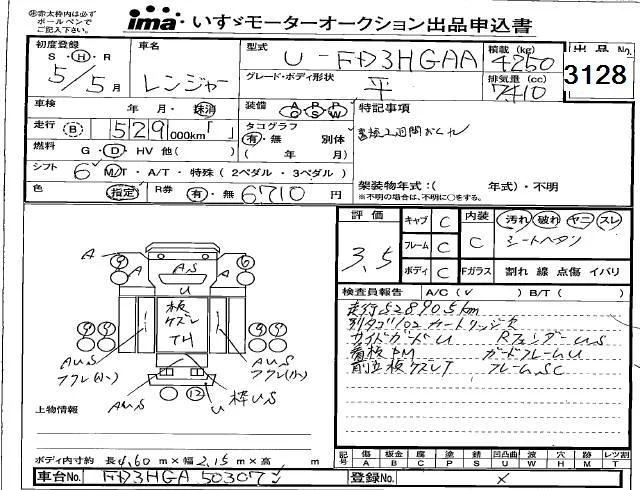 ㊟赤太枠内は必ず
ボールペンで
ご記入下さい。
ima いすゞモーターオークション出品申込書
初度登録
S・H・R
5/5月
車名
レンジャー
型式
U-FD3HGAA
積載(kg)
4250
出品No.
3128
グレード・ボディ形状
平
排気量(cc)
7410
車検 年 月・抹消
装備 AC PS PW
特記事項
書換2週間おくれ
走行 B 529 000km
タコグラフ
有・無 別体
( 年 月)
燃料 G・D・HV 他( )
シフト 6 M/T・A/T・特殊(2ペダル・3ペダル)
架装物年式:( 年式)・不明
※不明の場合は、不明に○をする。
色 指定 R券 有・無 6710 円
評価
3.5
キャブ C
フレーム C
ボディ C
内装 C
汚れ 破れ ヤニ スレ
シートヘタリ
Fガラス 割れ 線 点傷 イバリ
検査員報告 A/C(✓) B/T( )
走行528905km
別タコ'02 カートリッジ欠
サイドガードU RフェンダーUS
看板PM ガードフレームU
前立板ケズレT フレームSC
A
A
AS
U
板
ケズレ
TH
AUS
フクレ(小)
AUS
フクレ(小)
AUS
U
枠US
12
上物情報
ボディ内寸約 長4.60m×幅2.15m×高 m
記号 傷A 板金B 腐C 塗P 錆S 凹U 凸凹曲U 波W 穴H 跡M レツ割T
車台No. FD3HGA 50307
登録No. ×